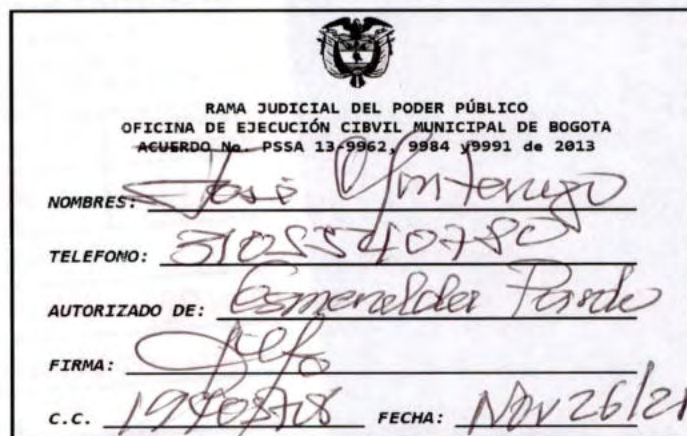 RAMA JUDICIAL DEL PODER PÚBLICO
OFICINA DE EJECUCIÓN CIBVIL MUNICIPAL DE BOGOTA
ACUERDO No. PSSA 13-9962, 9984 y9991 de 2013
NOMBRES: José Montenegro
TELEFONO:
AUTORIZADO DE: Esmeralda Pardo
FIRMA:
C.C. FECHA: Nov 26/21